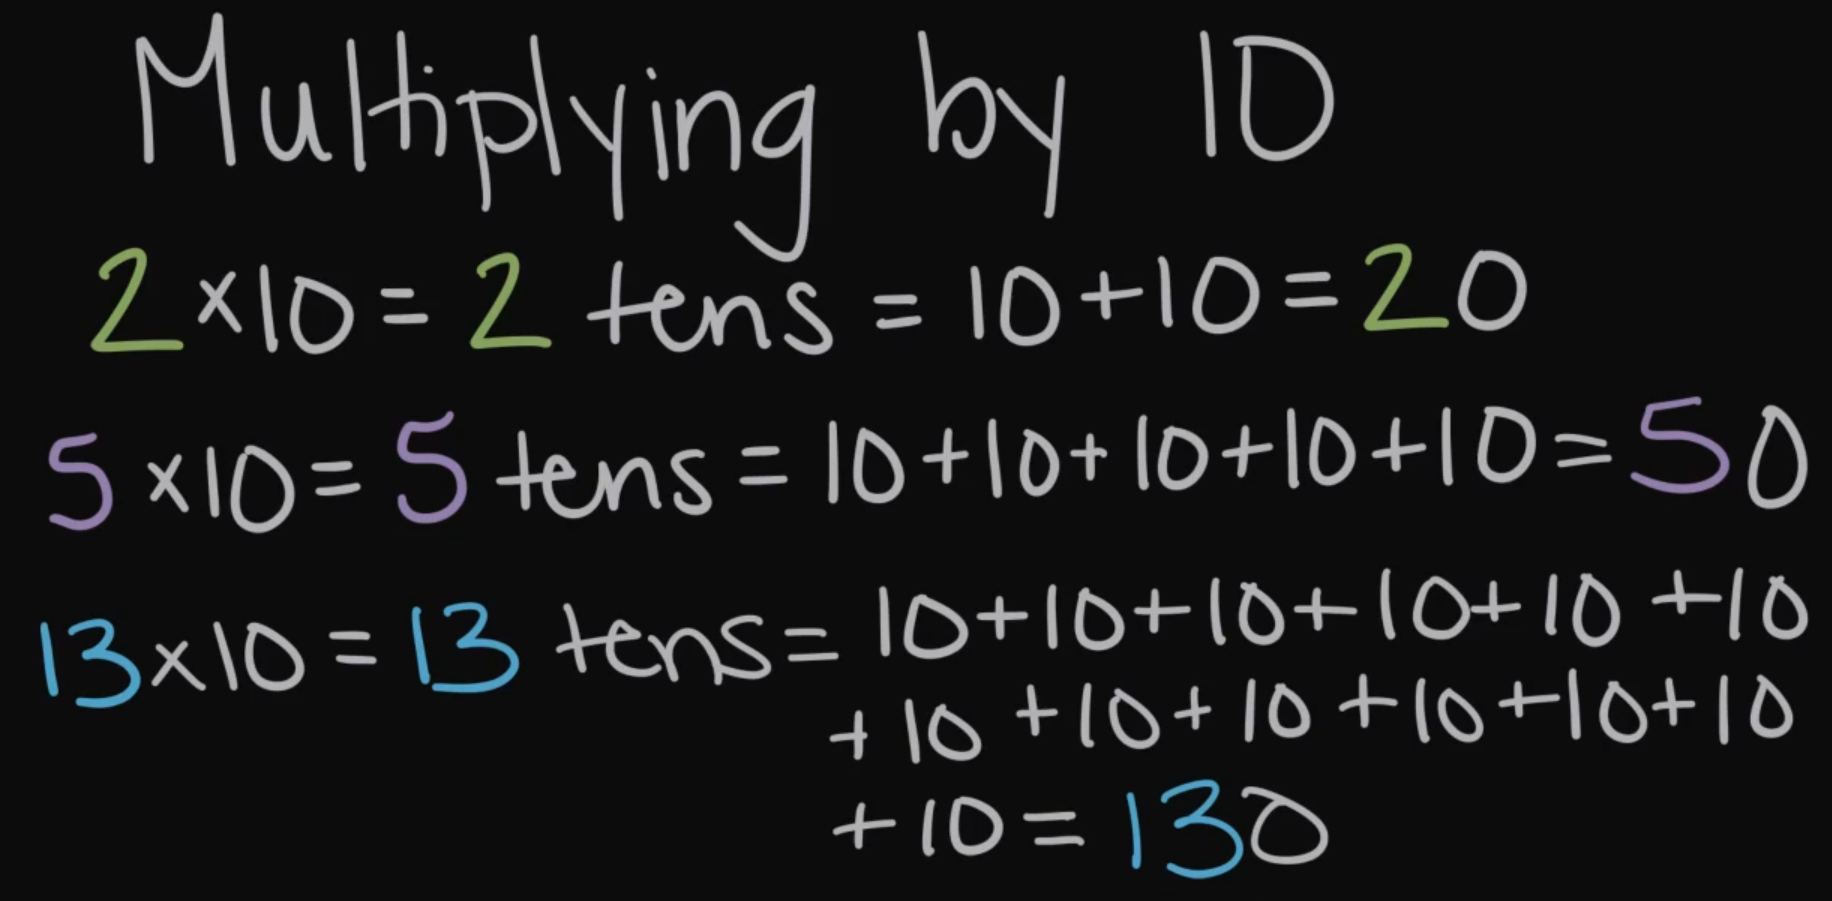 Multiplying by 10
2×10=2 tens = 10+10=20
5×10=5 tens = 10+10+10+10+10=50
13×10=13 tens= 10+10+10+10+10+10
+10+10+10+10+10+10
+10=130